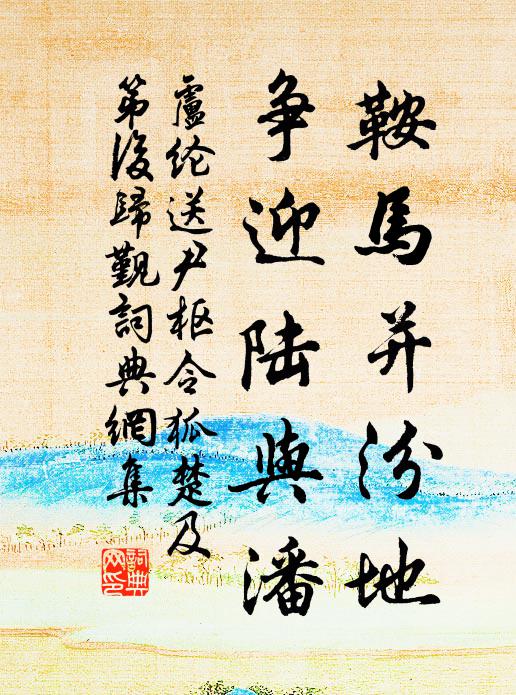 鞍馬并汾地
争迎陆與潘
盧纶送尹枢令狐楚及
第後歸覲詞典網集
詞典网印